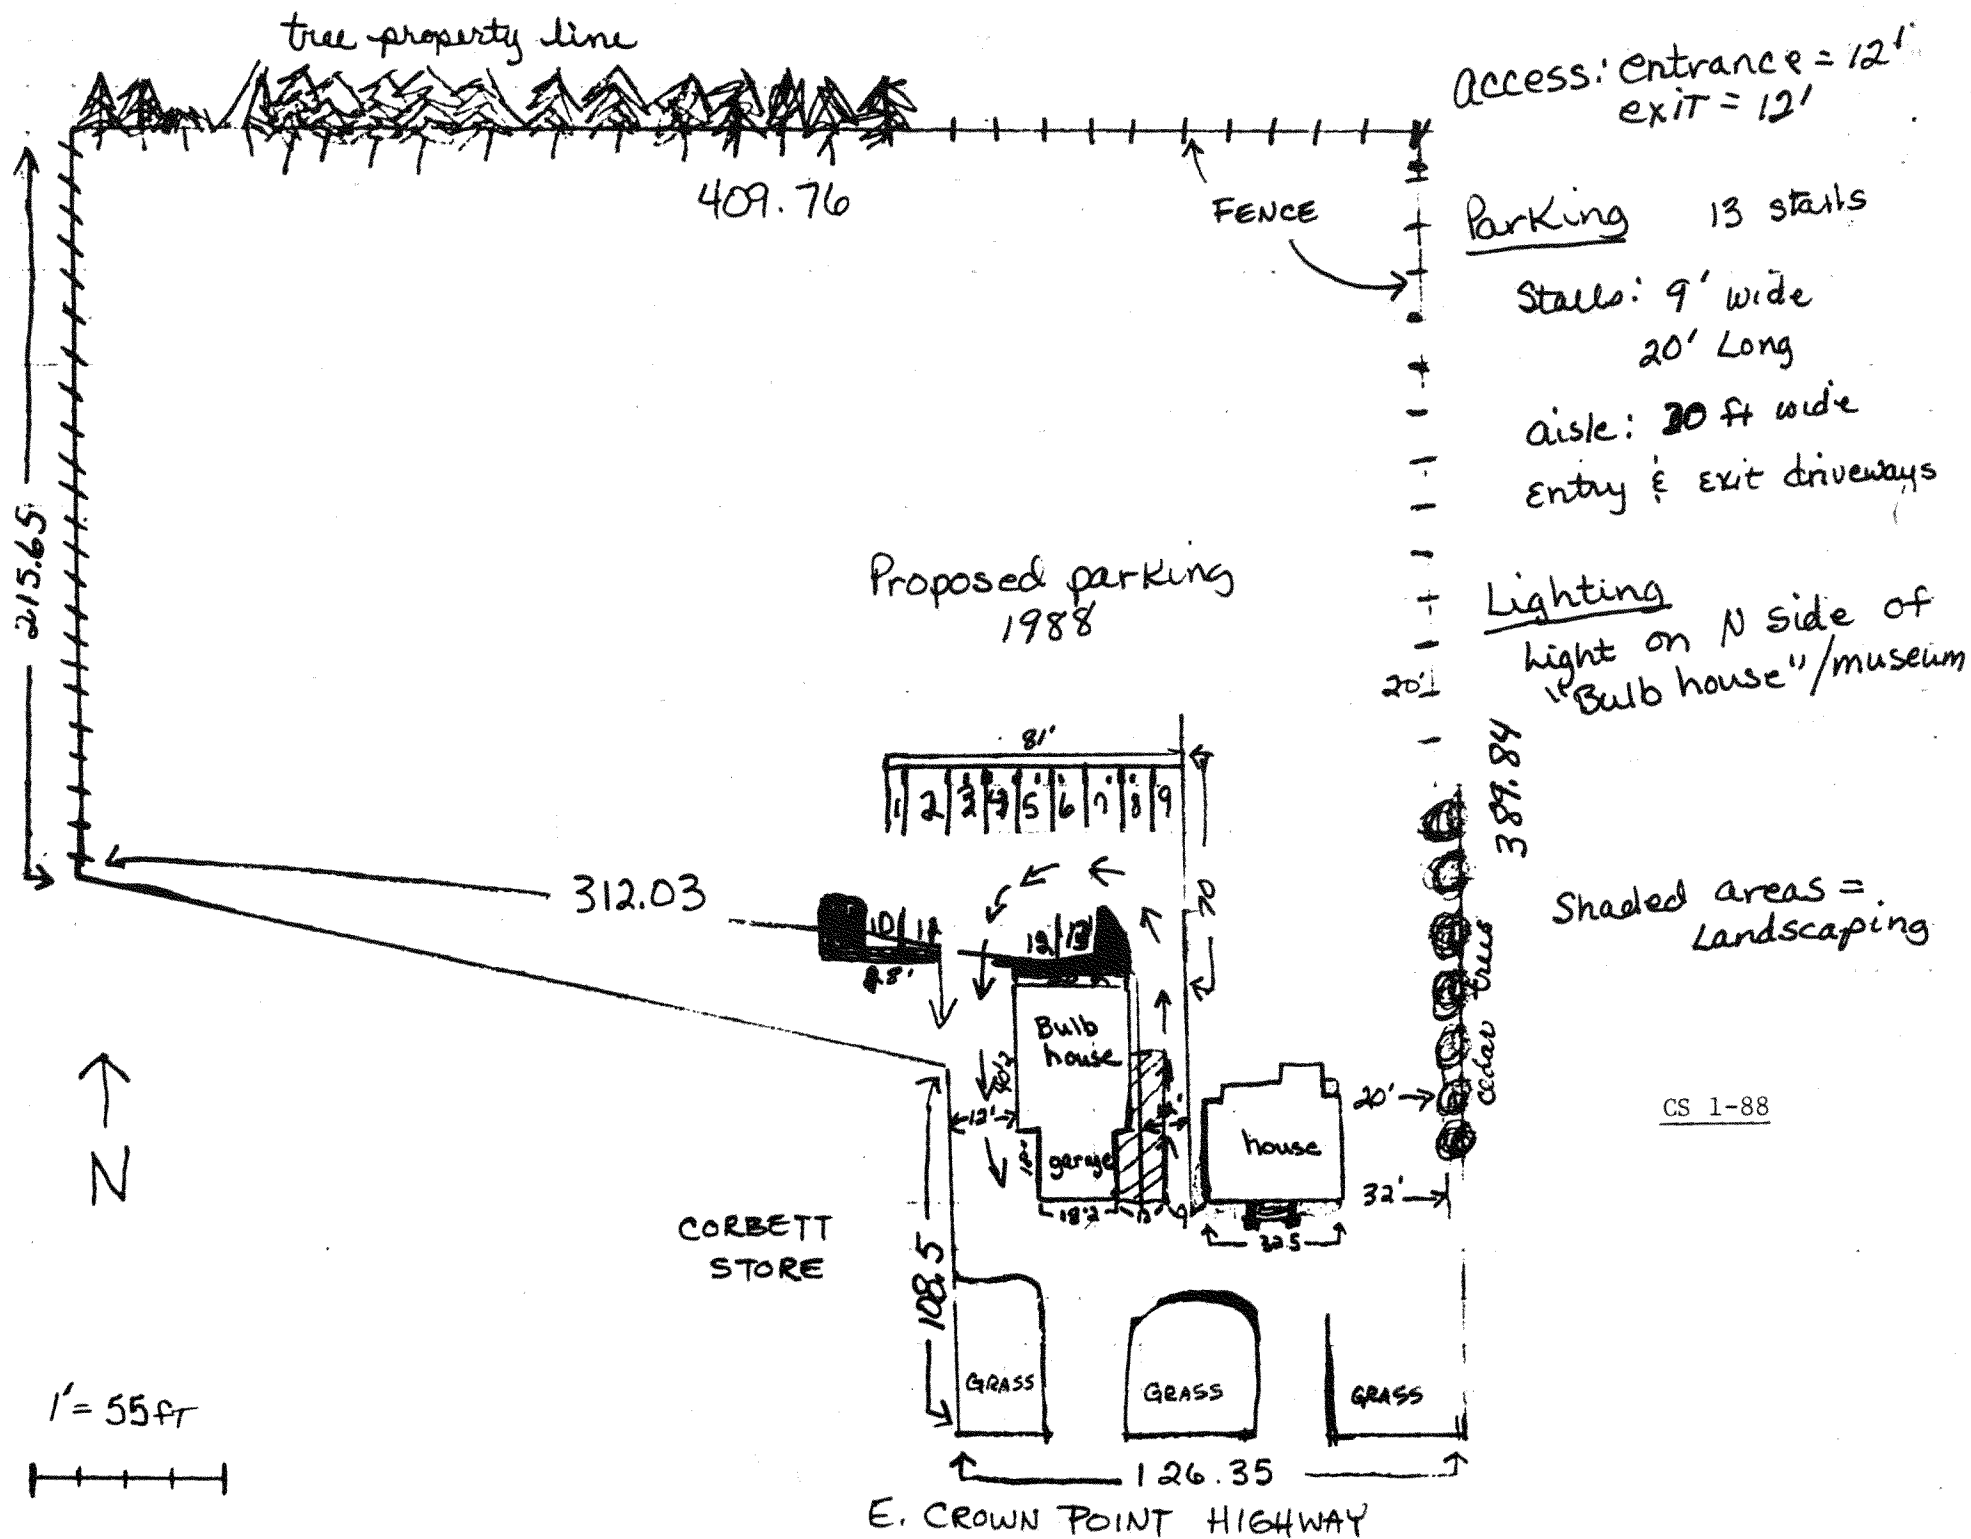 tree property line
Access: entrance = 12'
exit = 12'
409.76
FENCE
Parking 13 stalls
Stalls: 9' wide
20' Long
aisle: 20 ft wide
Entry & Exit driveways
215.65
Proposed parking
1988
Lighting
Light on N side of
"Bulb house"/museum
20'
389.84
81'
1 2 3 4 5 6 7 8 9
70
312.03
10 11
12 13
28'
Shaded areas =
Landscaping
cedar trees
Bulb
house
40'2
12'
20'
CS 1-88
house
garage
N
32'
18'2
32.5
CORBETT
STORE
108.5
GRASS
GRASS
GRASS
1' = 55 ft
126.35
E. CROWN POINT HIGHWAY